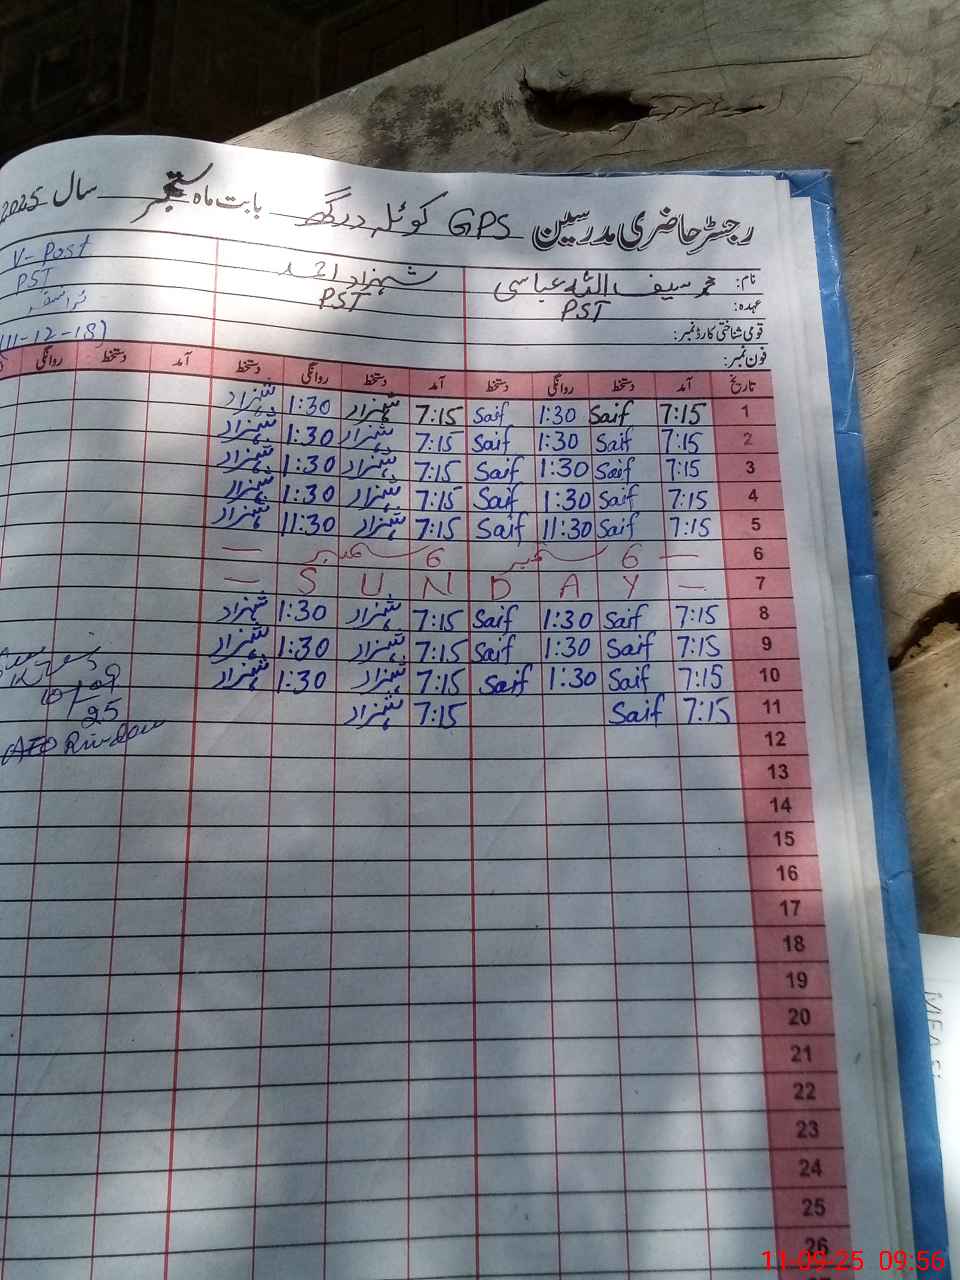 رجسٹر حاضری مدرسین GPS کوئلہ درگھ بابت ماہ ستمبر سال 2025
نام: محمد سیف اللہ عباسی شہزاد احمد V-Post
عہدہ: PST PST PST
قومی شناختی کارڈ نمبر:
فون نمبر: (11-12-18)
تاریخ آمد دستخط روانگی دستخط آمد دستخط روانگی دستخط آمد دستخط روانگی
1 7:15 Saif 1:30 Saif 7:15 شہزاد 1:30 شہزاد
2 7:15 Saif 1:30 Saif 7:15 شہزاد 1:30 شہزاد
3 7:15 Saif 1:30 Saif 7:15 شہزاد 1:30 شہزاد
4 7:15 Saif 1:30 Saif 7:15 شہزاد 1:30 شہزاد
5 7:15 Saif 11:30 Saif 7:15 شہزاد 11:30 شہزاد
6 — 6 ستمبر 6 ستمبر —
7 — S U N D A Y —
8 7:15 Saif 1:30 Saif 7:15 شہزاد 1:30 شہزاد
9 7:15 Saif 1:30 Saif 7:15 شہزاد 1:30 شہزاد
10 7:15 Saif 1:30 Saif 7:15 شہزاد 1:30 شہزاد
11 7:15 Saif 7:15 شہزاد
10/09
25
AEO
12
13
14
15
16
17
18
19
20
21
22
23
24
25
26
11-09-25 09:56